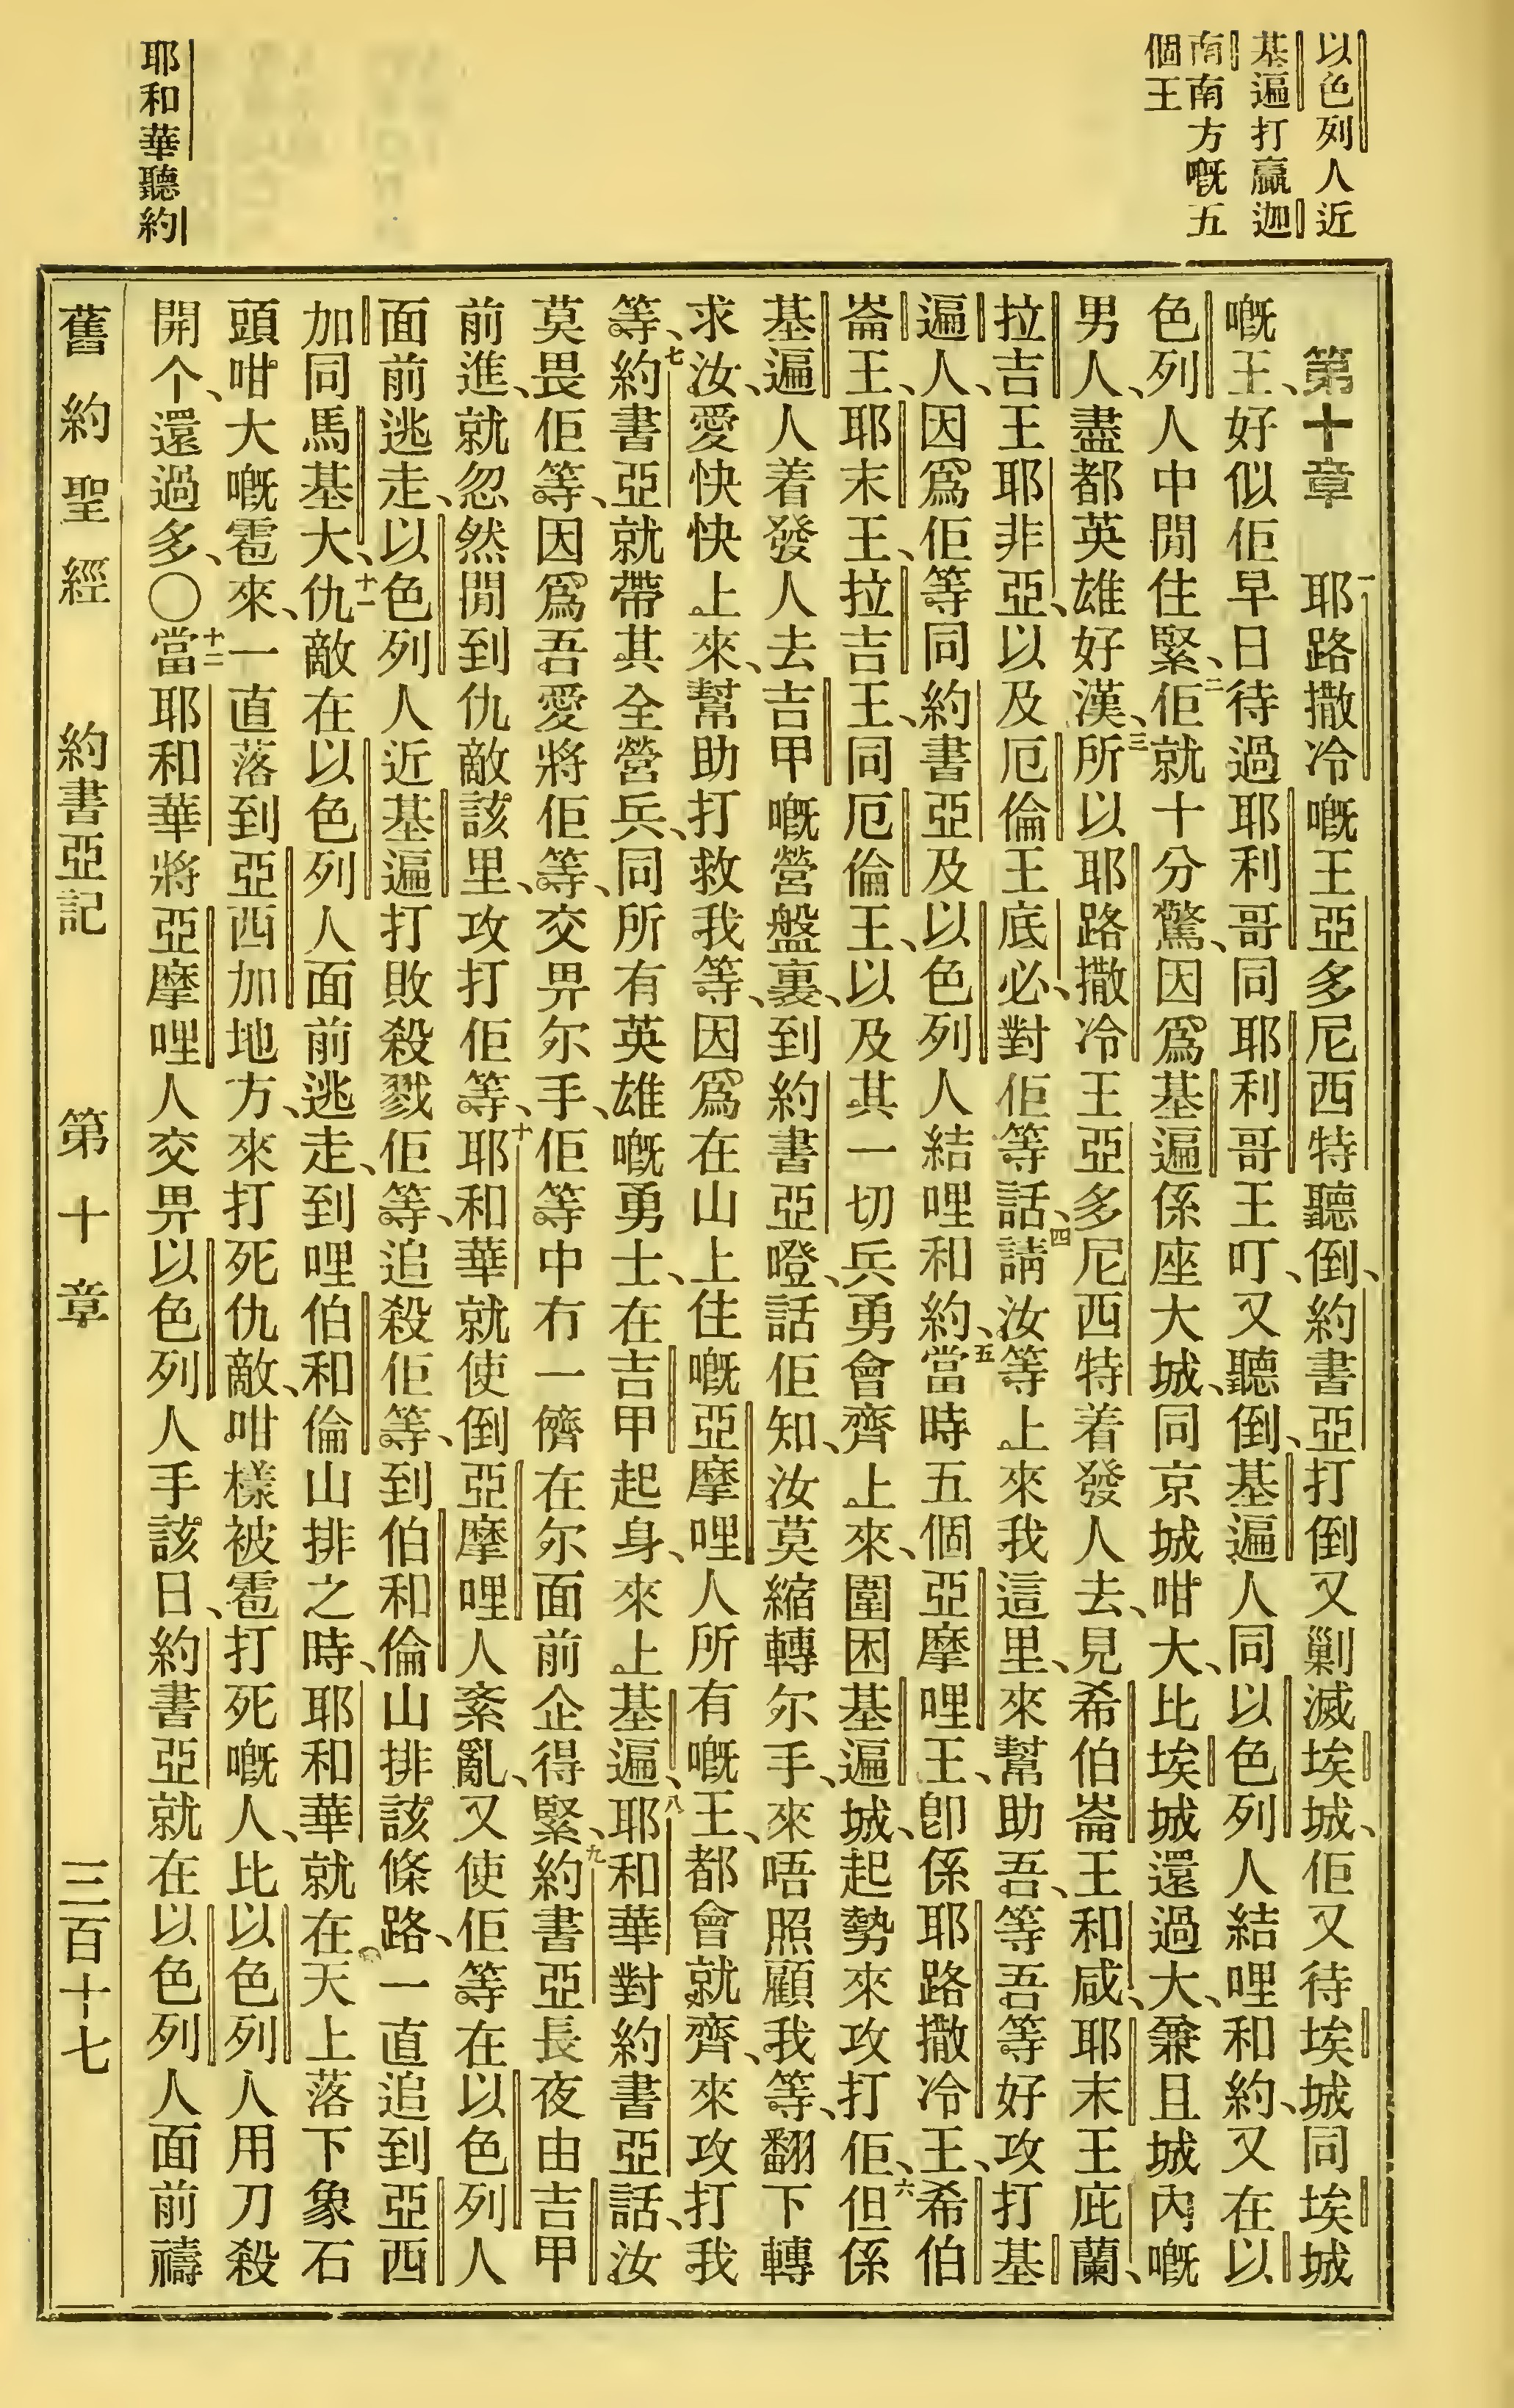 以色列人近
基遍打贏迦
南南方嘅五
個王
耶和華聽約
第十章 一耶路撒冷嘅王亞多尼西特聽倒、約書亞打倒又剿滅埃城、佢又待埃城同埃城
嘅王、好似佢早日待過耶利哥同耶利哥王叮、又聽倒、基遍人同以色列人結哩和約、又在以
色列人中間住緊、二佢就十分驚、因爲基遍係座大城、同京城咁大、比埃城還過大、兼且城內嘅
男人、盡都英雄好漢、三所以耶路撒冷王亞多尼西特着發人去、見希伯崙王和咸、耶末王庇蘭、
拉吉王耶非亞、以及厄倫王底必、對佢等話、四請汝等上來我這里、來幫助吾、等吾等好攻打基
遍人、因爲佢等同約書亞及以色列人結哩和約、五當時五個亞摩哩王、卽係耶路撒冷王、希伯
崙王、耶末王、拉吉王、同厄倫王、以及其一切兵勇會齊上來、圍困基遍城、起勢來攻打佢、六但係
基遍人着發人去吉甲嘅營盤裏、到約書亞嶝、話佢知、汝莫縮轉尔手、來唔照顧我等、翻下轉
求汝、愛快快上來、幫助打救我等、因爲在山上住嘅亞摩哩人所有嘅王、都會就齊、來攻打我
等、七約書亞就帶其全營兵、同所有英雄嘅勇士、在吉甲起身、來上基遍、八耶和華對約書亞話、汝
莫畏佢等、因爲吾愛將佢等、交畀尔手、佢等中冇一儕在尔面前企得緊、九約書亞長夜由吉甲
前進、就忽然間到仇敵該里、攻打佢等、十耶和華就使倒亞摩哩人紊亂、又使佢等在以色列人
面前逃走、以色列人近基遍打敗殺戮佢等、追殺佢等、到伯和倫山排該條路、一直追到亞西
加同馬基大、十一仇敵在以色列人面前逃走、到哩伯和倫山排之時、耶和華就在天上落下象石
頭咁大嘅雹來、一直落到亞西加地方、來打死仇敵、咁樣被雹打死嘅人、比以色列人用刀殺
開个、還過多、〇十二當耶和華將亞摩哩人交畀以色列人手該日、約書亞就在以色列人面前禱
舊約聖經 約書亞記 第十章 三百十七